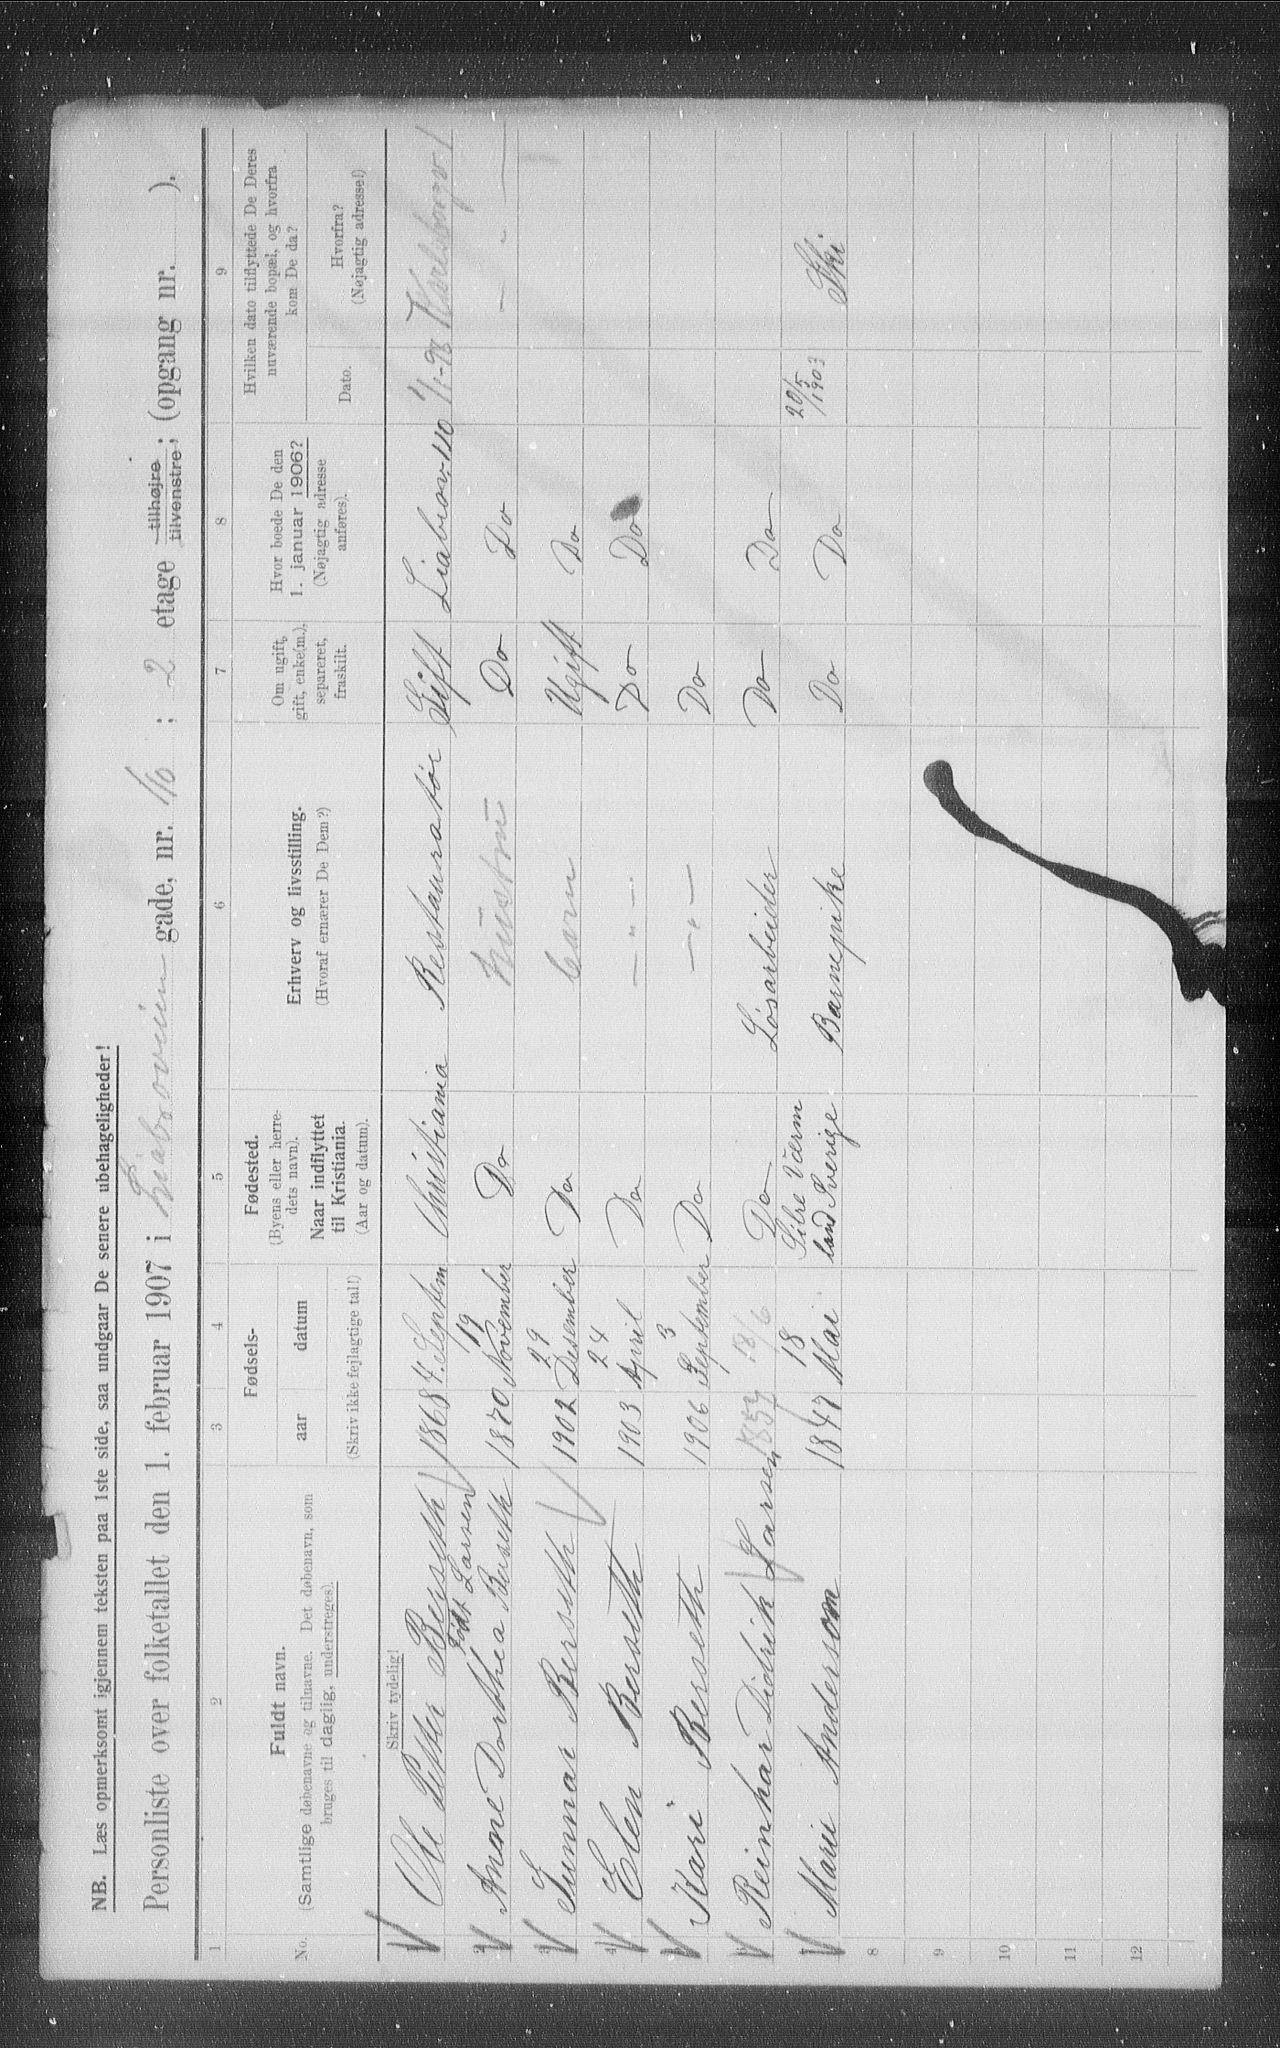 NB. Læs opmerksomt igjennem teksten paa 1ste side, saa undgaar De senere ubehageligheder!
Personliste over folketallet den 1. februar 1907 i Liabroveien gade, nr. 110 ; 2 etage tilhøjre tilvenstre; (opgang nr. ).
1 2 3 4 5 6 7 8 9
No.
Fuldt navn.
(Samtlige døbenavne og tilnavne. Det døbenavn, som
bruges til daglig, understreges).
Fødsels-
aar datum
(Skriv ikke fejlagtige tal!)
Fødested.
(Byens eller herre-
dets navn).
Naar indflyttet
til Kristiania.
(Aar og datum).
Erhverv og livsstilling.
(Hvoraf ernærer De Dem?)
Om ugift,
gift, enke(m.),
separeret,
fraskilt.
Hvor boede De den
1. januar 1906?
(Nøjagtig adresse
anføres).
Hvilken dato tilflyttede De Deres
nuværende bopæl, og hvorfra
kom De da?
Dato.
Hvorfra?
(Nøjagtig adresse!)
Skriv tydelig!
Ole Petter Berseth 1868 7. Septem Christiania Restauratør Gift Liabrov. 110 1/1-98 Karlsborgv 1
født Larsen 19
Anne Dorthea Berseth 1870 November Do hustru Do Do — „ —
29
Gunnar Berseth 1902 Desember Do barn Ugift Do
24
Elen Berseth 1903 April Do — „ — Do Do
3
Kari Berseth 1906 September Do — „ — Do
Reinhar Didrik Larsen 1857 18/6 Do Løsarbeider Do Do
18 Silre Værm 20/5 1903
Marie Anderson 1847 Mai land Sverige Barnepike Do Do Ski
8
9
10
11
12